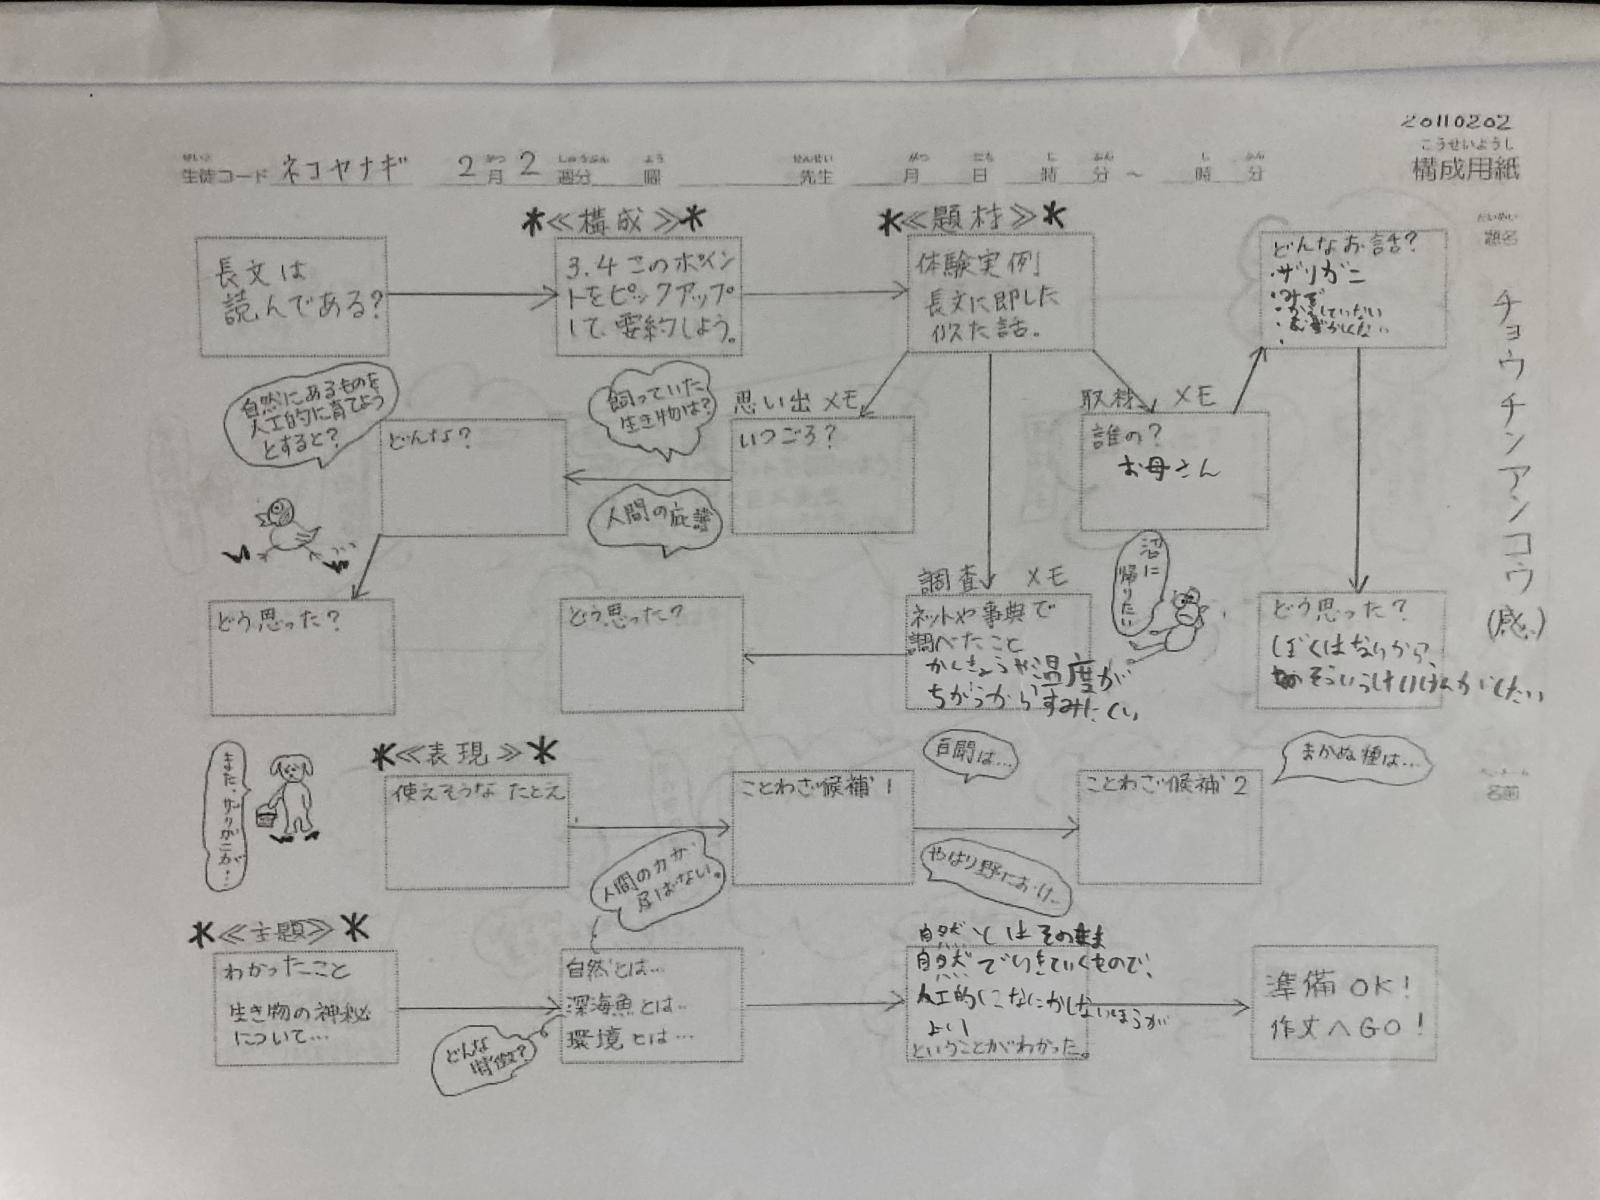 20110202
こうせいようし
構成用紙
せいと
生徒コード ネコヤナギ 2月 2週分 曜 先生 月 日 時 分 〜 時 分
だいめい
題名
チョウチンアンコウ(感)
名前
*≪構成≫*
*≪題材≫*
長文は
読んである?
3.4このポイン
トをピックアップ
して、要約しよう。
体験実例
長文に即した
似た話。
どんなお話?
・ザリガニ
・みず
自然にあるものを
人工的に育てよう
とすると?
飼っていた
生き物は?
思い出メモ
いつごろ?
どんな?
人間の庇護
取材 メモ
誰の?
お母さん
沼に
帰りたい
調査 メモ
ネットや事典で
調べたこと
かんきょうや温度が
ちがうからすみにくい
どう思った?
どう思った?
どう思った?
ぼくはないから、
そういうけいけんがしたい
また、ザリガニが!
*≪表現≫*
使えそうな たとえ
ことわざ候補1
ことわざ候補2
百聞は…
まかぬ種は…
人間の力が
及ばない。
やはり野におけ…
*≪主題≫*
わかったこと
生き物の神秘
について…
どんな
特徴?
自然とは…
深海魚とは…
環境とは…
自然とはそのまま
自然で いきていくもので、
人工的になにかしないほうが
よい
ということがわかった。
準備OK!
作文へGO!